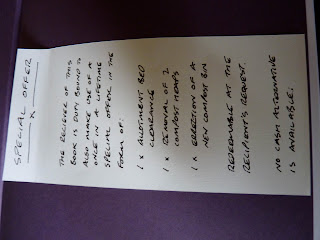 SPECIAL OFFER
THE RECIEVER OF THIS
BOOK IS DUTY BOUND TO
ALSO MAKE USE OF A
ONCE IN A LIFETIME
SPECIAL OFFER IN THE
FORM OF:
1 x ALLOTMENT BED
CLEARANCE
1 x REMOVAL OF 2
COMPOST HEAPS
1 x ERECTION OF A
NEW COMPOST BIN
REDEEMABLE AT THE
RECIPIENT'S REQUEST.
NO CASH ALTERNATIVE
IS AVAILABLE.